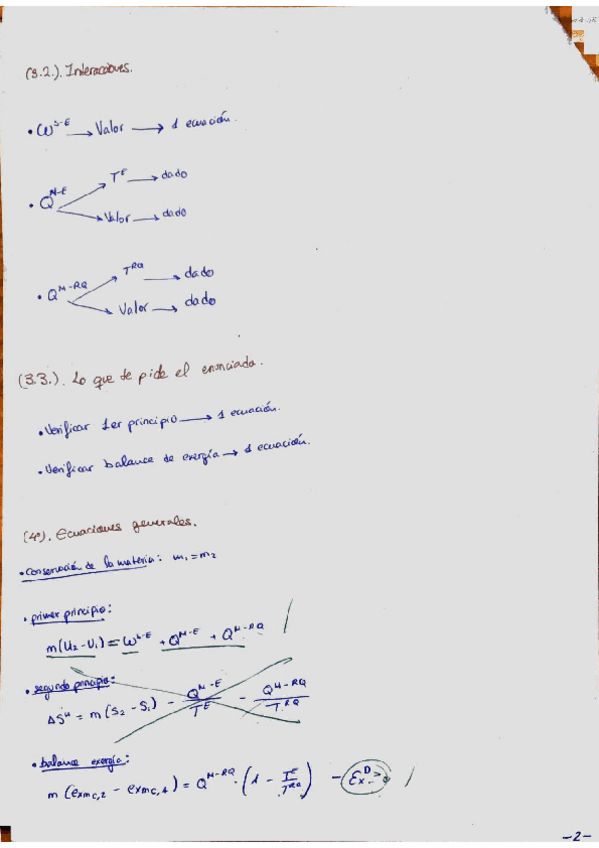 (3.2.). Interacciones.
• W^S-E → Valor → 1 ecuación.
• Q^M-E
T^E → dado
Valor → dado
• Q^M-RQ
T^RQ → dado
Valor → dado
(3.3.). Lo que te pide el enunciado.
• Verificar 1er principio → 1 ecuación.
• Verificar balance de exergía → 1 ecuación.
(4º). Ecuaciones generales.
• conservación de la materia: m₁ = m₂
• primer principio:
m(U₂-U₁) = W^S-E + Q^M-E + Q^M-RQ
• segundo principio:
ΔS^U = m(S₂ - S₁) - Q^M-E/T^E - Q^M-RQ/T^RQ
• balance exergía:
m (exmc,2 - exmc,1) = Q^M-RQ · (1 - T^E/T^RQ) - Ex^D > 0
-2-